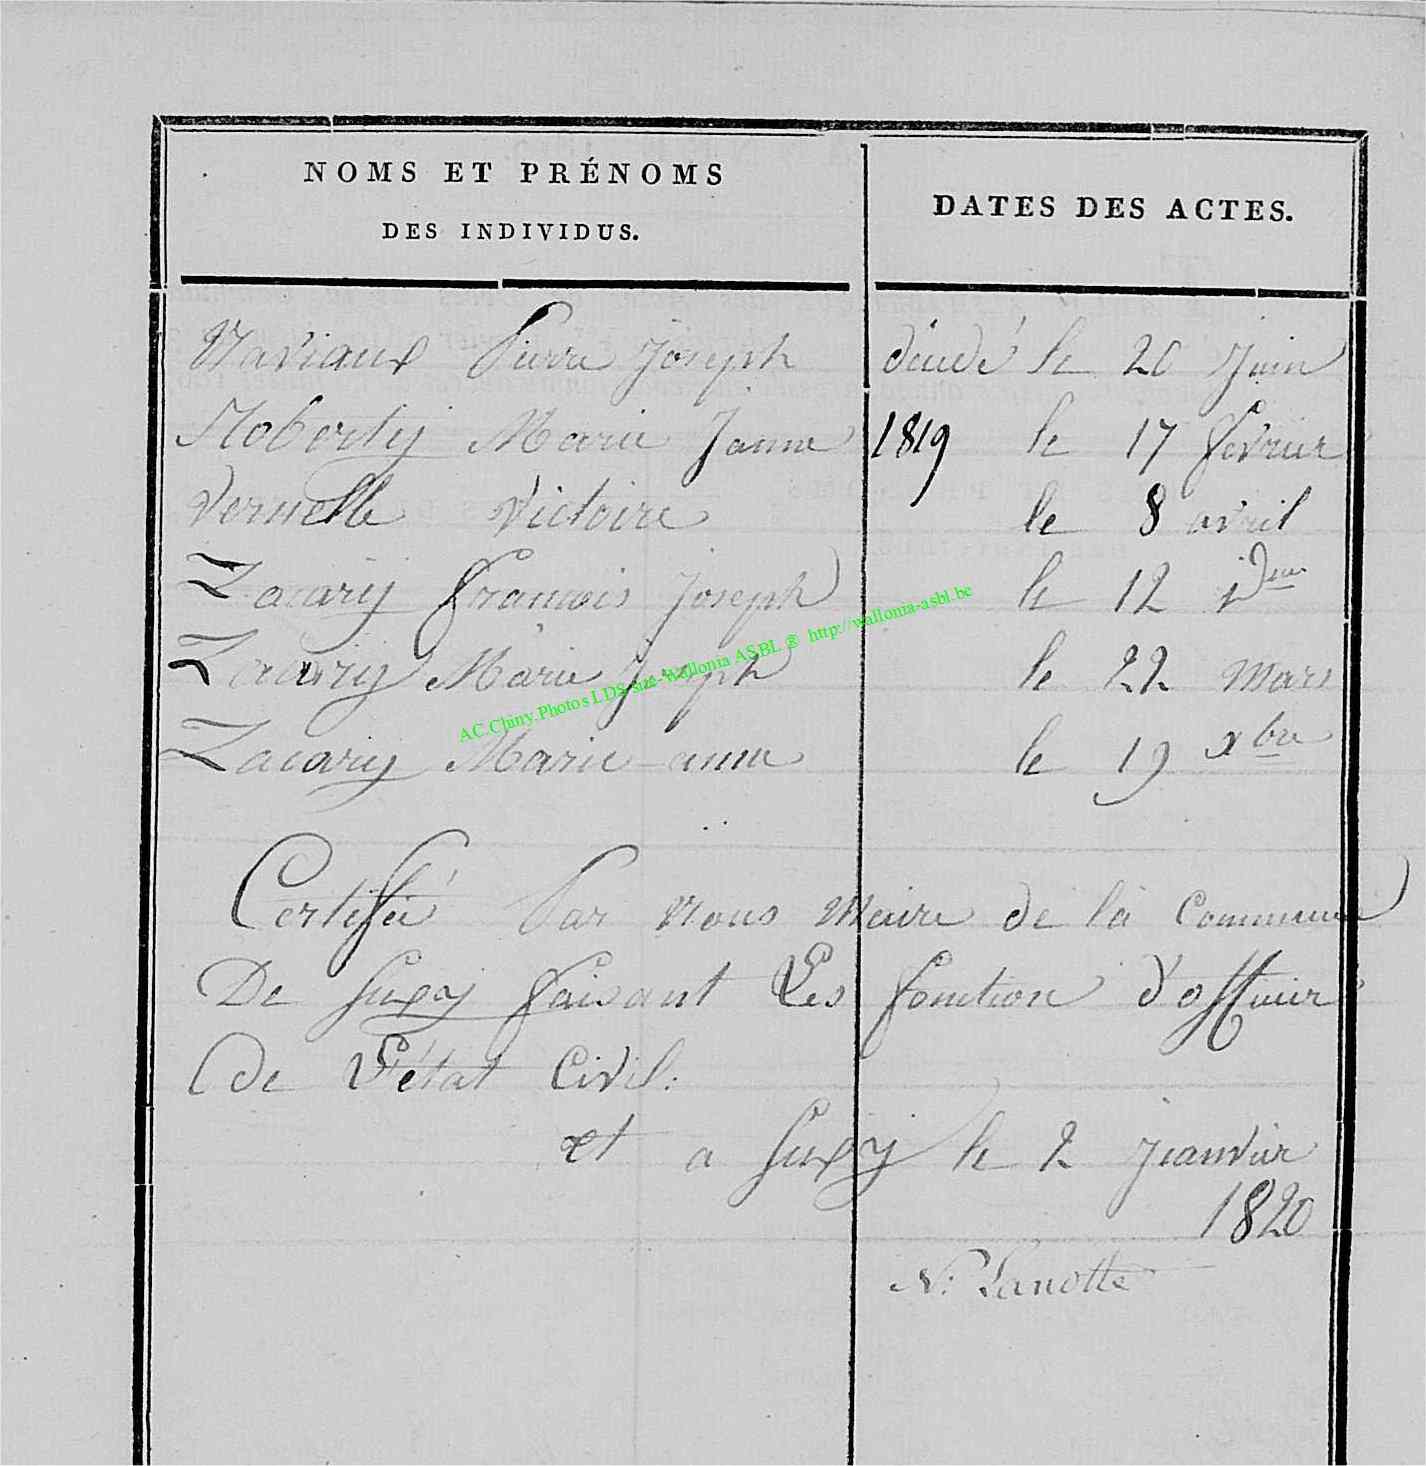 NOMS ET PRÉNOMS
DES INDIVIDUS.
DATES DES ACTES.
Naviaux Pierre Joseph décedé le 20 Juin
Roberty Marie Jeanne 1819 le 17 fevrier
Vernelle Victoire le 8 avril
Zacary francois Joseph le 12 idem
Zacary Marie Joseph le 22 Mars
Zacary Marie anne le 19 xbre
AC.Chiny.Photos LDS sur Wallonia ASBL ® http://wallonia-asbl.be
Certifié Par Nous Maire de la Commune
De Suxy faisant Les fonction d'officier
de L'état Civil.
et a Suxy le 2 Jeanvier
1820
N: Lanotte